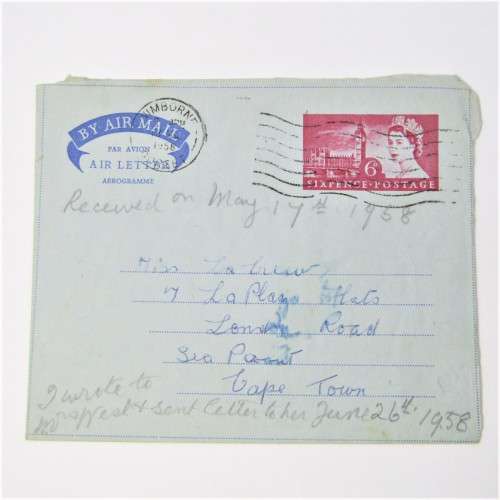 WIMBORNE
1958
BY AIR MAIL
PAR AVION
AIR LETTER
AÉROGRAMME
6D
SIXPENCE·POSTAGE
Received on May 17th 1958
Miss
7 La Plaza Flats
London Road
Sea Point
Cape Town
I wrote to
Mrs West & sent letter to her June 26th 1958